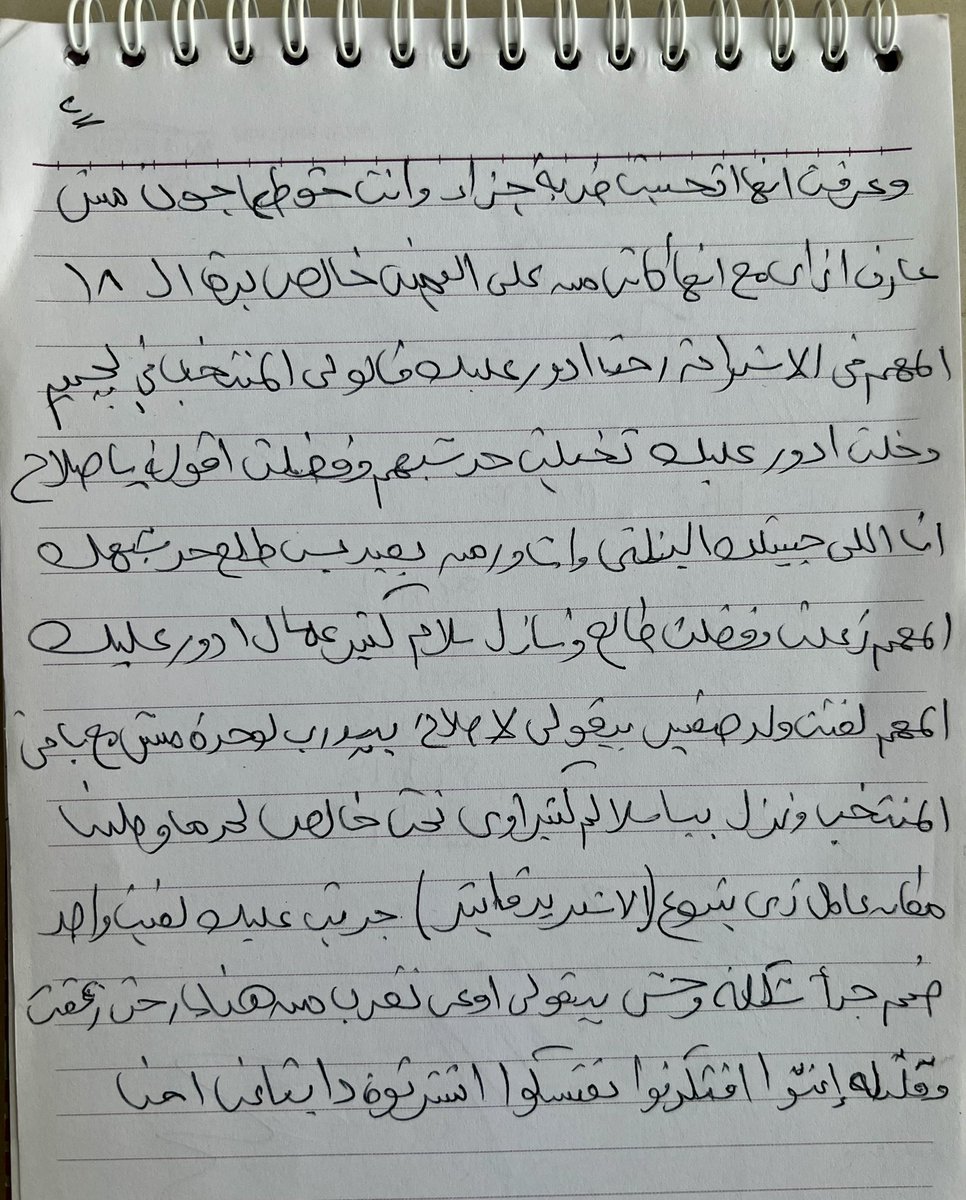 وعرفت انها اتحسبت ضربة جزاء وانت حتوطها جون مش
عارف ازاى مع انها كانت من على اليمين خالص برة ال ١٨
المهم فى الاستراحة رحت ادور عليك قالولى المنتخب فى الجيم
دخلت ادور عليك تخيلت حد شبهم وفضلت اقوله يا صلاح
انا اللى جيبتلك البنلتى وانا ورمه بعيد بس طلع حد شبهك
المهم زعلت وفضلت طالع ونازل سلالم كتير عمال ادور عليك
المهم لقيت ولد صغير بيقولى لا صلاح بيدرب لوحدة مش مع باقى
المنتخب ونزل بيا سلالم كتير اوى تحت خالص لحد ما وصلنا
مكان عامل زى بتوع (الاستريت فايتر) جريت عليك لقيت واحد
ضخم جدأ شكلة وحش بيقولى اوعى تقرب من هنا رحت زعقت
وقلتله إنتوا افتكرتوا نفسكوا اشتريتوة دا بتاعنا احنا